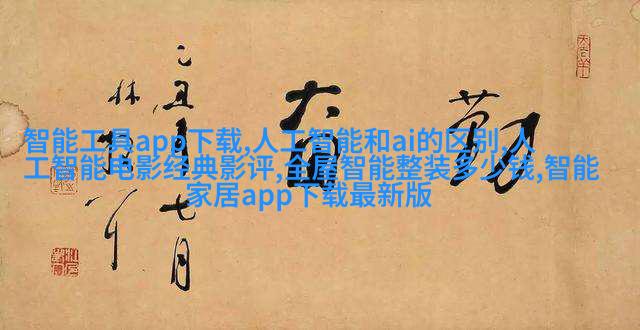 智能工具app下载,人工智能和ai的区别,人
工智能电影经典影评,全屋智能整装多少钱,智能
家居app下载最新版
勤
乙丑年七月
林